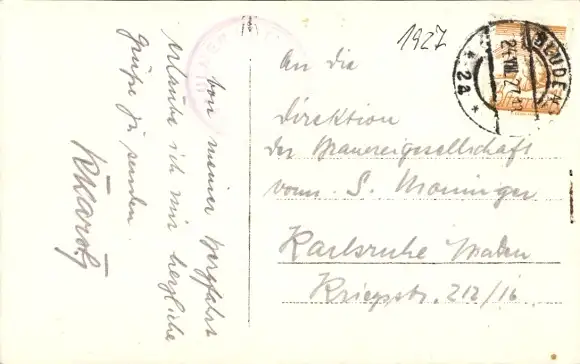 Von meiner Bergfahrt
erlaube ich mir herzliche
Grüße zu senden.
1927
BLUDENZ
24.VIII.27
* 2a *
An die
Direktion
der Brauereigesellschaft
vorm. S. Moninger
Karlsruhe Baden
Kriegsstr. 212/16